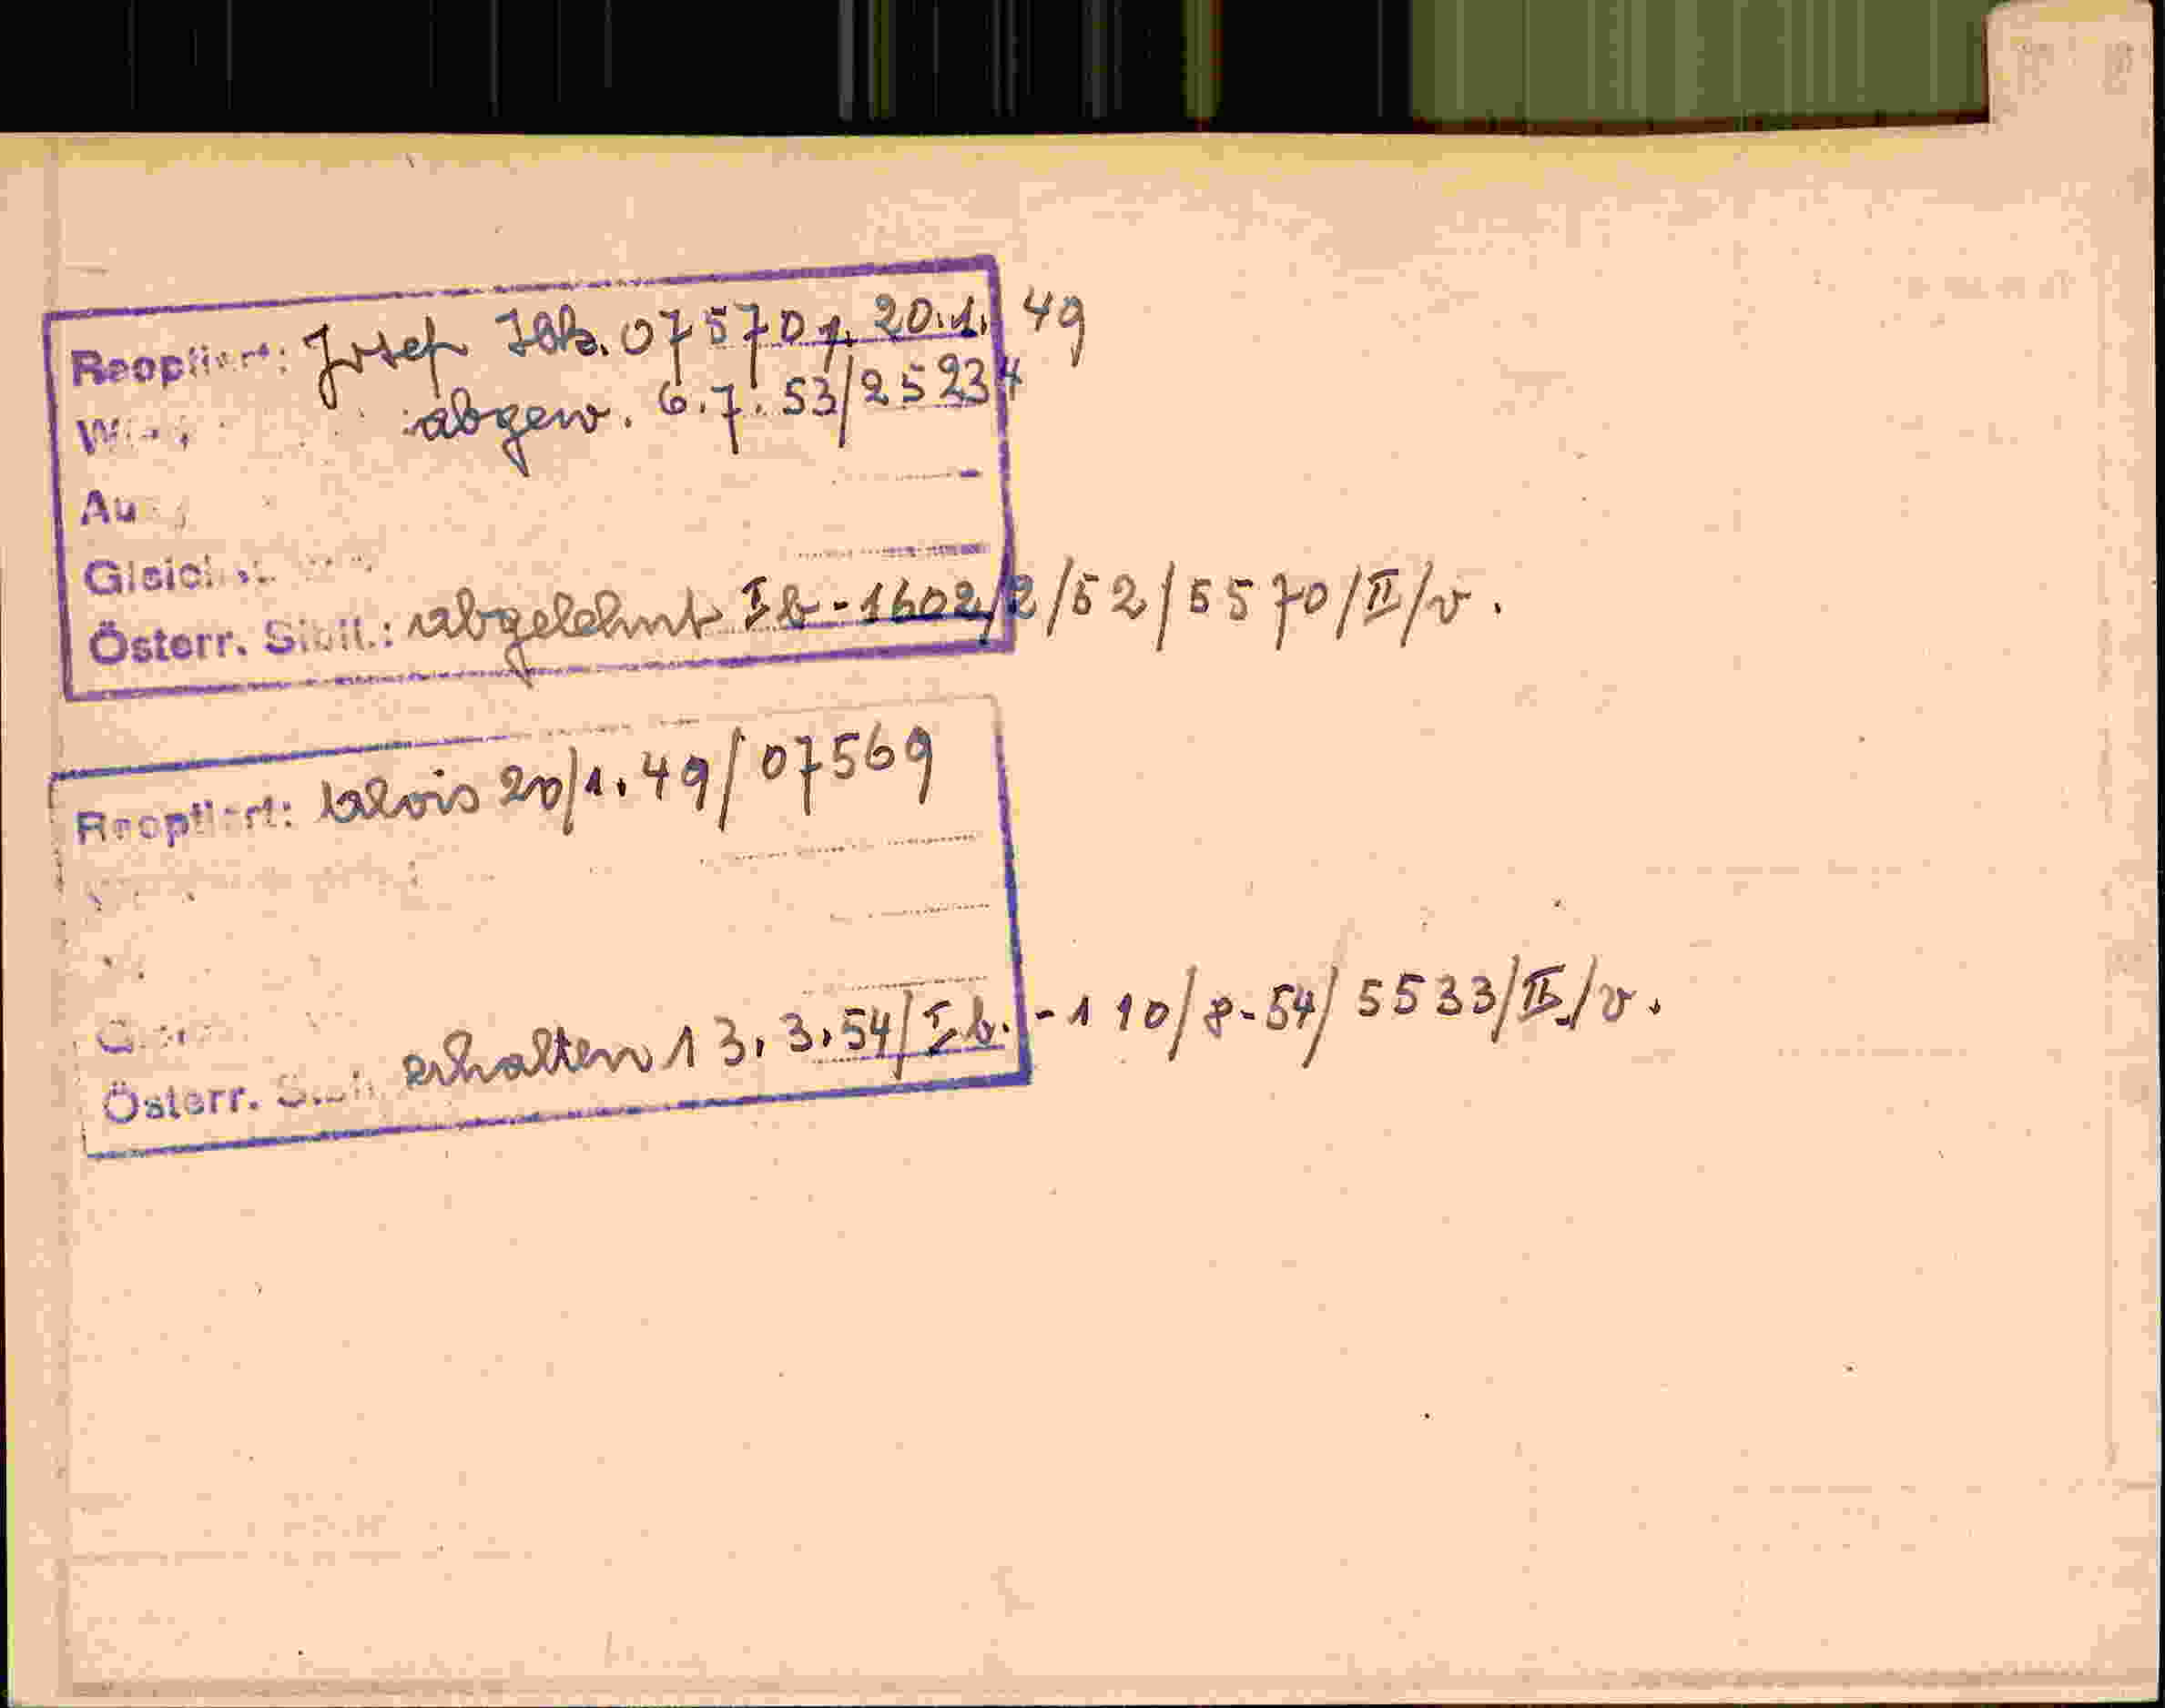 Reoptiert: Josef 07570 v. 20.1.49
abgew. 6.7.53/25234
Österr. Stbü.: abgelehnt Ib-1602/2/52/5570/II/v.
Reoptiert: Alois 20/1.49/07569
Österr. erhalten 13.3.54/Ib.-110/8-54/5533/II/v.